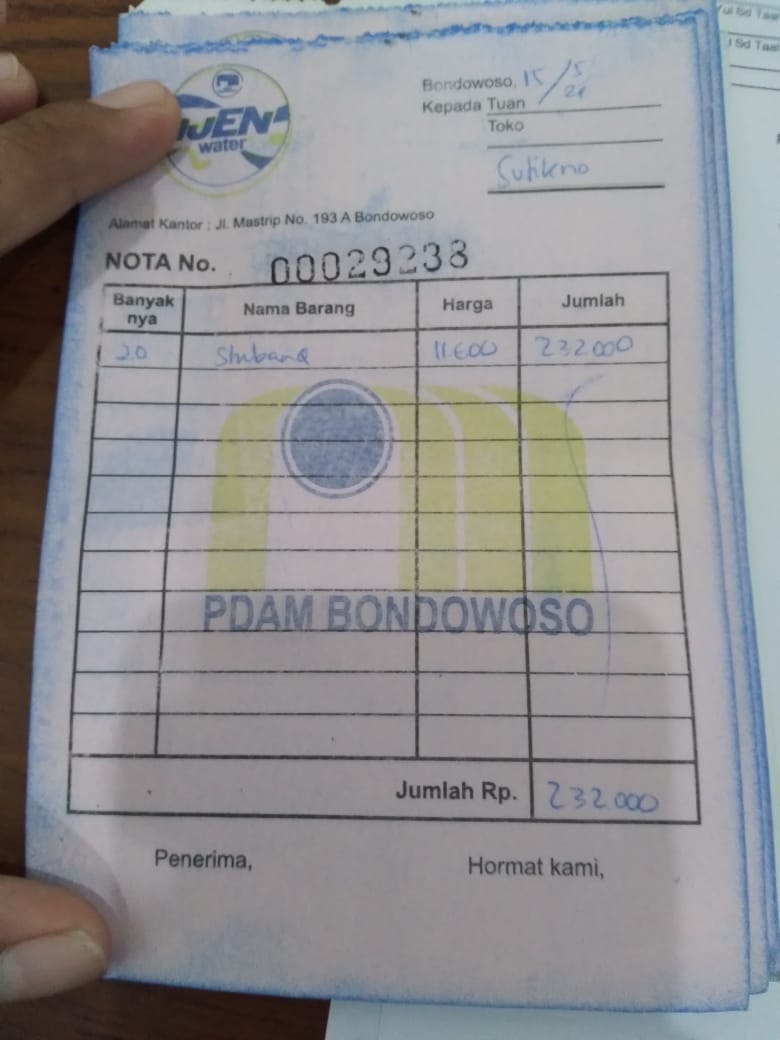 IJEN
water
Bondowoso, 15/5
Kepada Tuan
Toko
Sutikno
Alamat Kantor : Jl. Mastrip No. 193 A Bondowoso
NOTA No. 00029238
Banyak nya Nama Barang Harga Jumlah
20 11.600 232000
PDAM BONDOWOSO
Jumlah Rp. 232000
Penerima, Hormat kami,